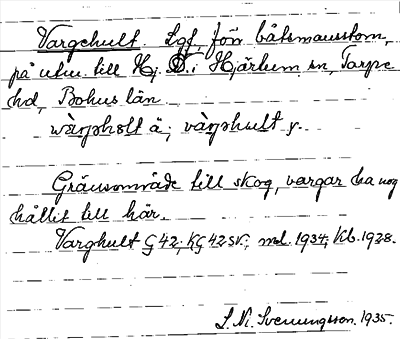 Vargehult. Lgf. för båtsmanstorp,
på utm. till Hj. D. i Hjärtum sn, Torpe
hd, Bohus län.
wàrgholt ä; vàrghult y.
Gränsområde till skog, vargar ha nog
hållit till här.
Varghult G 42; KG 42 SV.; ml. 1934; Kb. 1938.
S. Ni. Svenungsson. 1935.